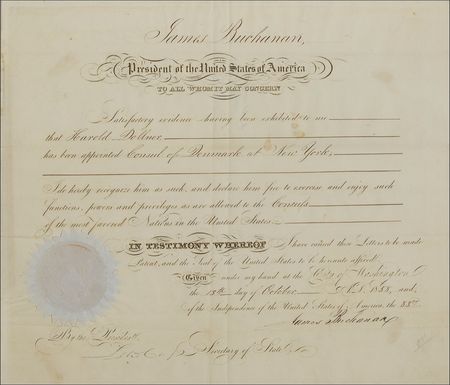 James Buchanan,
President of the United States of America
TO ALL WHOM IT MAY CONCERN
Satisfactory evidence having been exhibited to me
that Harold Dollner
has been appointed Consul of Denmark at New York,
I do hereby recognize him as such, and declare him free to exercise and enjoy such
functions, powers and privileges as are allowed to the Consuls
of the most favored Nations in the United States.
IN TESTIMONY WHEREOF I have caused these Letters to be made
Patent, and the Seal of the United States to be hereunto affixed.
Given under my hand at the City of Washington
the 18th day of October A.D. 1858, and
of the Independence of the United States of America, the 83rd
James Buchanan
By the President,
Secretary of State